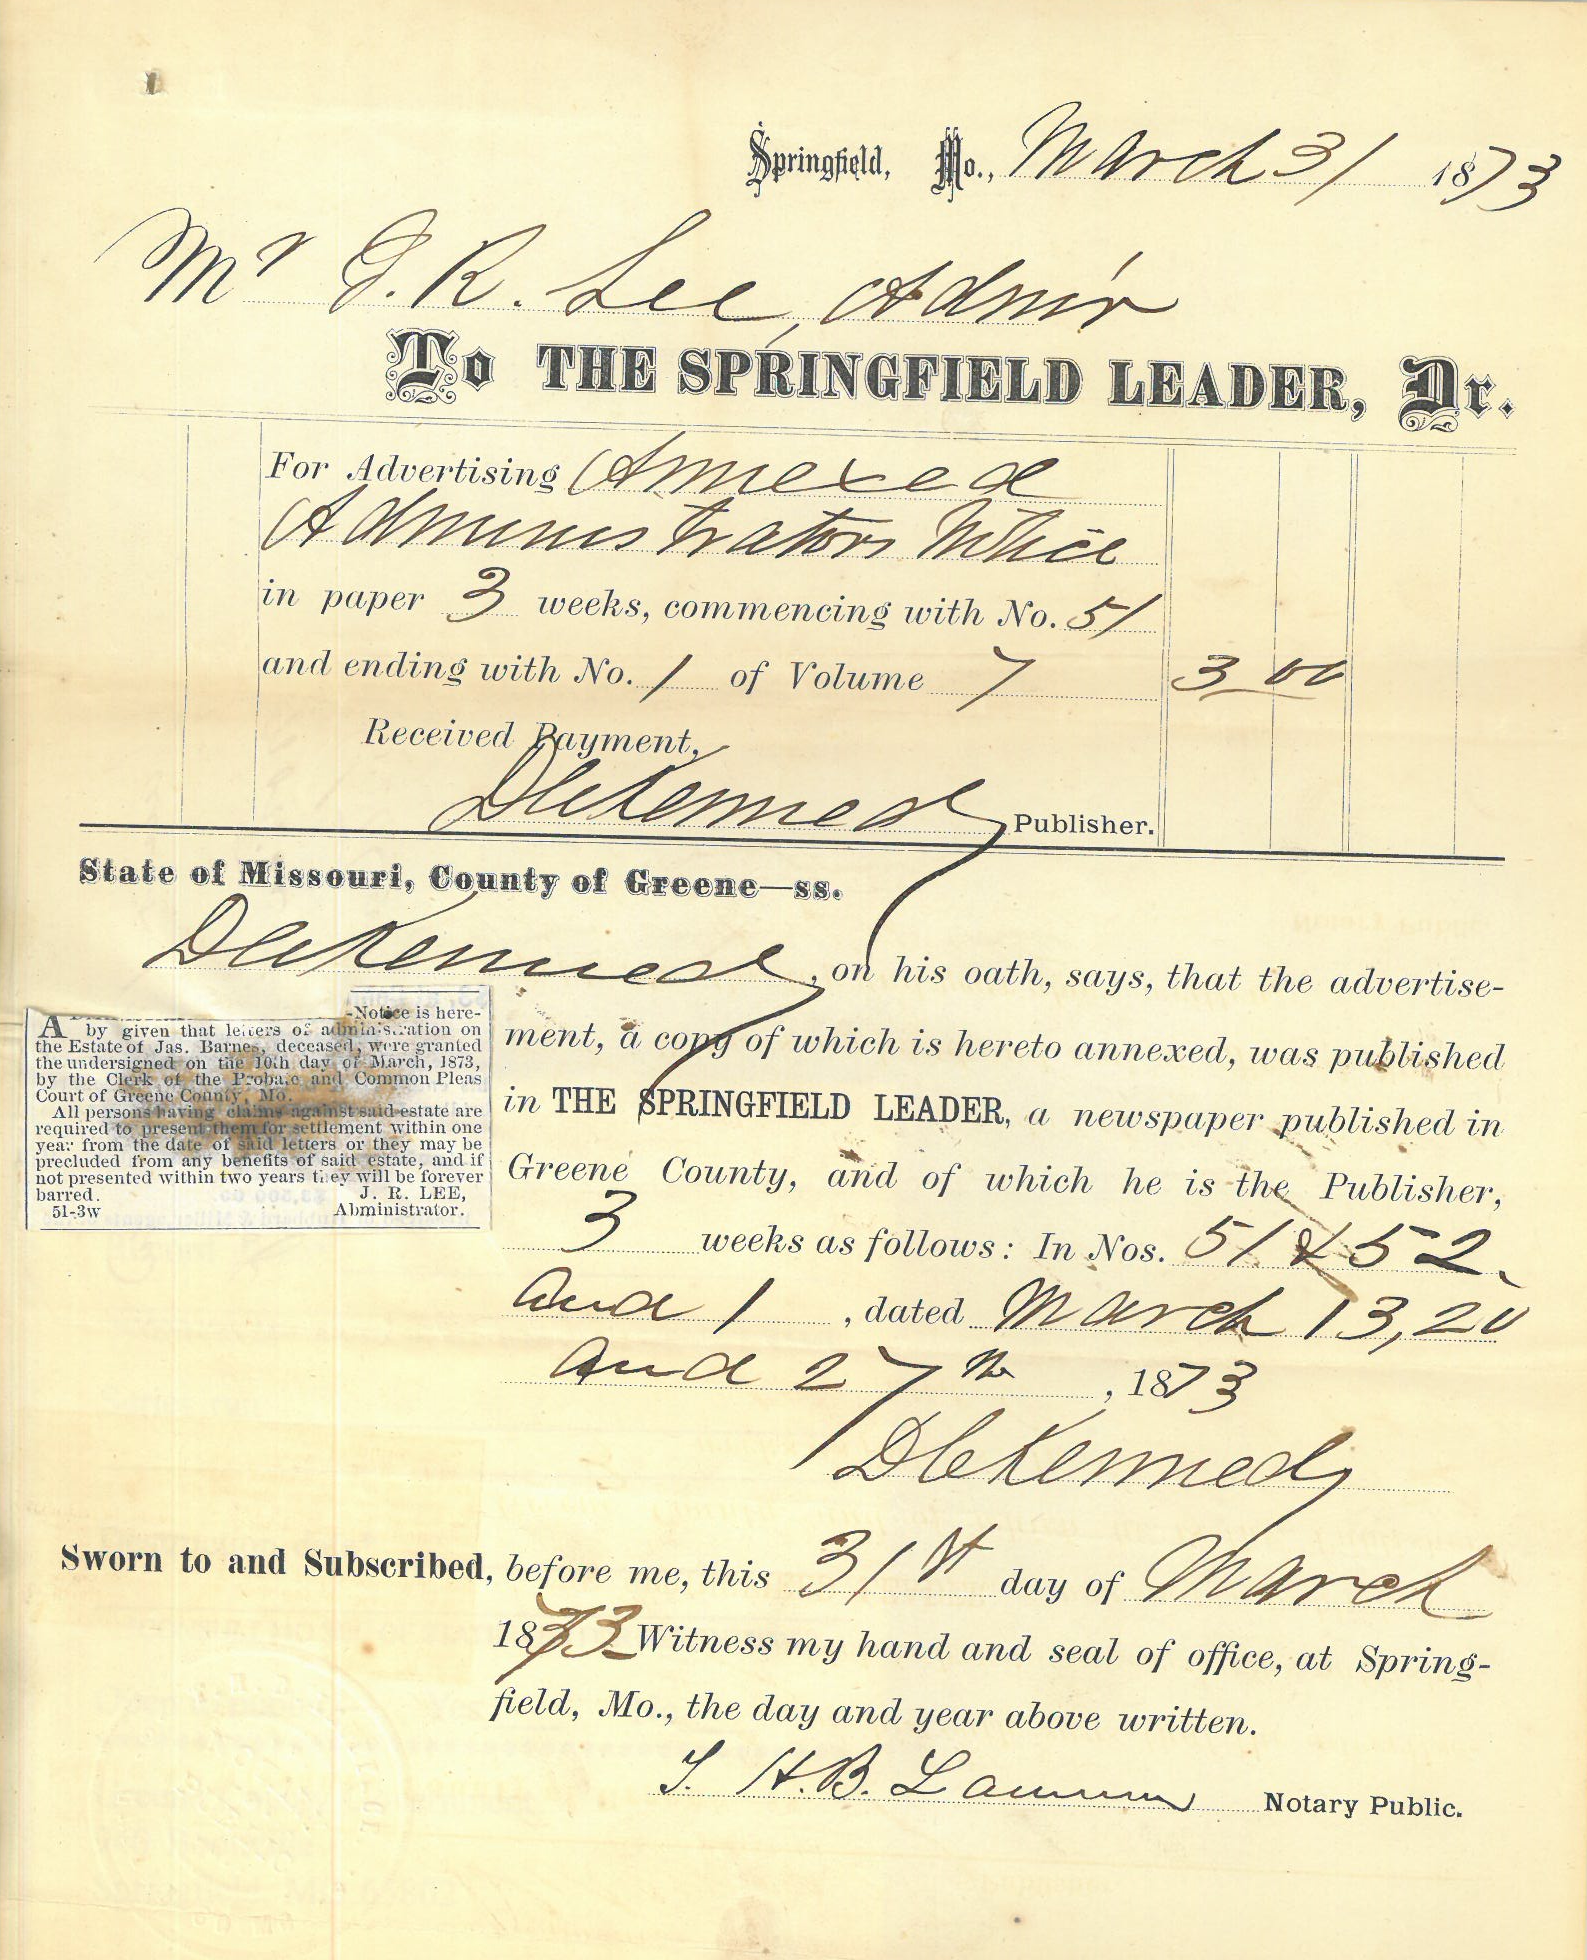 Springfield, Mo., March 31 1873
Mr J. R. Lee, Admir
To THE SPRINGFIELD LEADER, Dr.
For Advertising Annexed
Administrators Notice
in paper 3 weeks, commencing with No. 51
and ending with No. 1 of Volume 7 3 00
Received Payment,
DCKennedy Publisher.
State of Missouri, County of Greene—ss.
DCKennedy, on his oath, says, that the advertise-
ment, a copy of which is hereto annexed, was published
in THE SPRINGFIELD LEADER, a newspaper published in
Greene County, and of which he is the Publisher,
3 weeks as follows: In Nos. 51 & 52,
and 1, dated March 13, 20
and 27th, 1873
DCKennedy
-Notice is here-
A by given that letters of administration on
the Estate of Jas. Barnes, deceased, were granted
the undersigned on the 10th day of March, 1873,
by the Clerk of the Probate and Common Pleas
Court of Greene County, Mo.
All persons having claims against said estate are
required to present them for settlement within one
year from the date of said letters or they may be
precluded from any benefits of said estate, and if
not presented within two years they will be forever
barred. J. R. LEE,
51-3w Abministrator.
Sworn to and Subscribed, before me, this 31st day of March
1873 Witness my hand and seal of office, at Spring-
field, Mo., the day and year above written.
H. B. Notary Public.